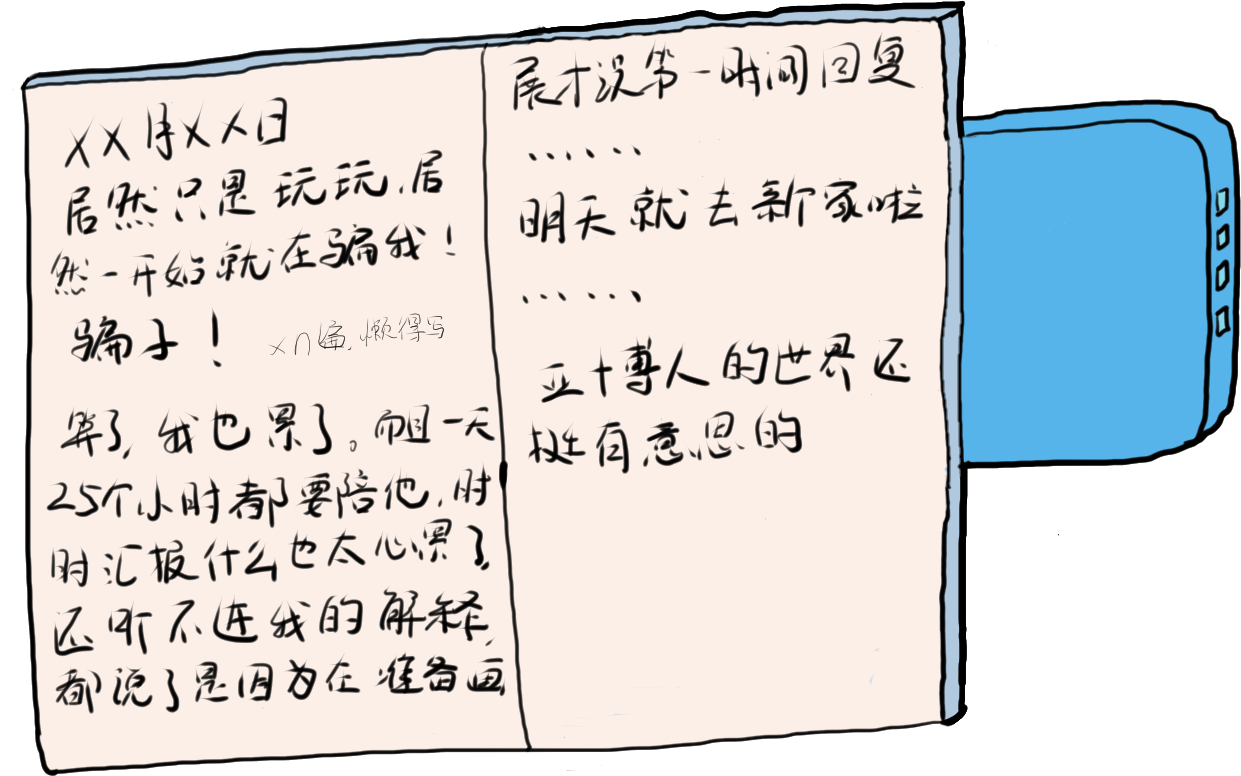 XX月XX日
居然只是玩玩,居
然一开始就在骗我!
骗子! xn遍,懒得写
算了,我也累了。而且一天
25个小时都要陪他,时
时汇报什么也太心累了,
还听不进我的解释,
都说了是因为在准备画
展才没第一时间回复
······
明天就去新家啦
······
亚十博人的世界还
挺有意思的